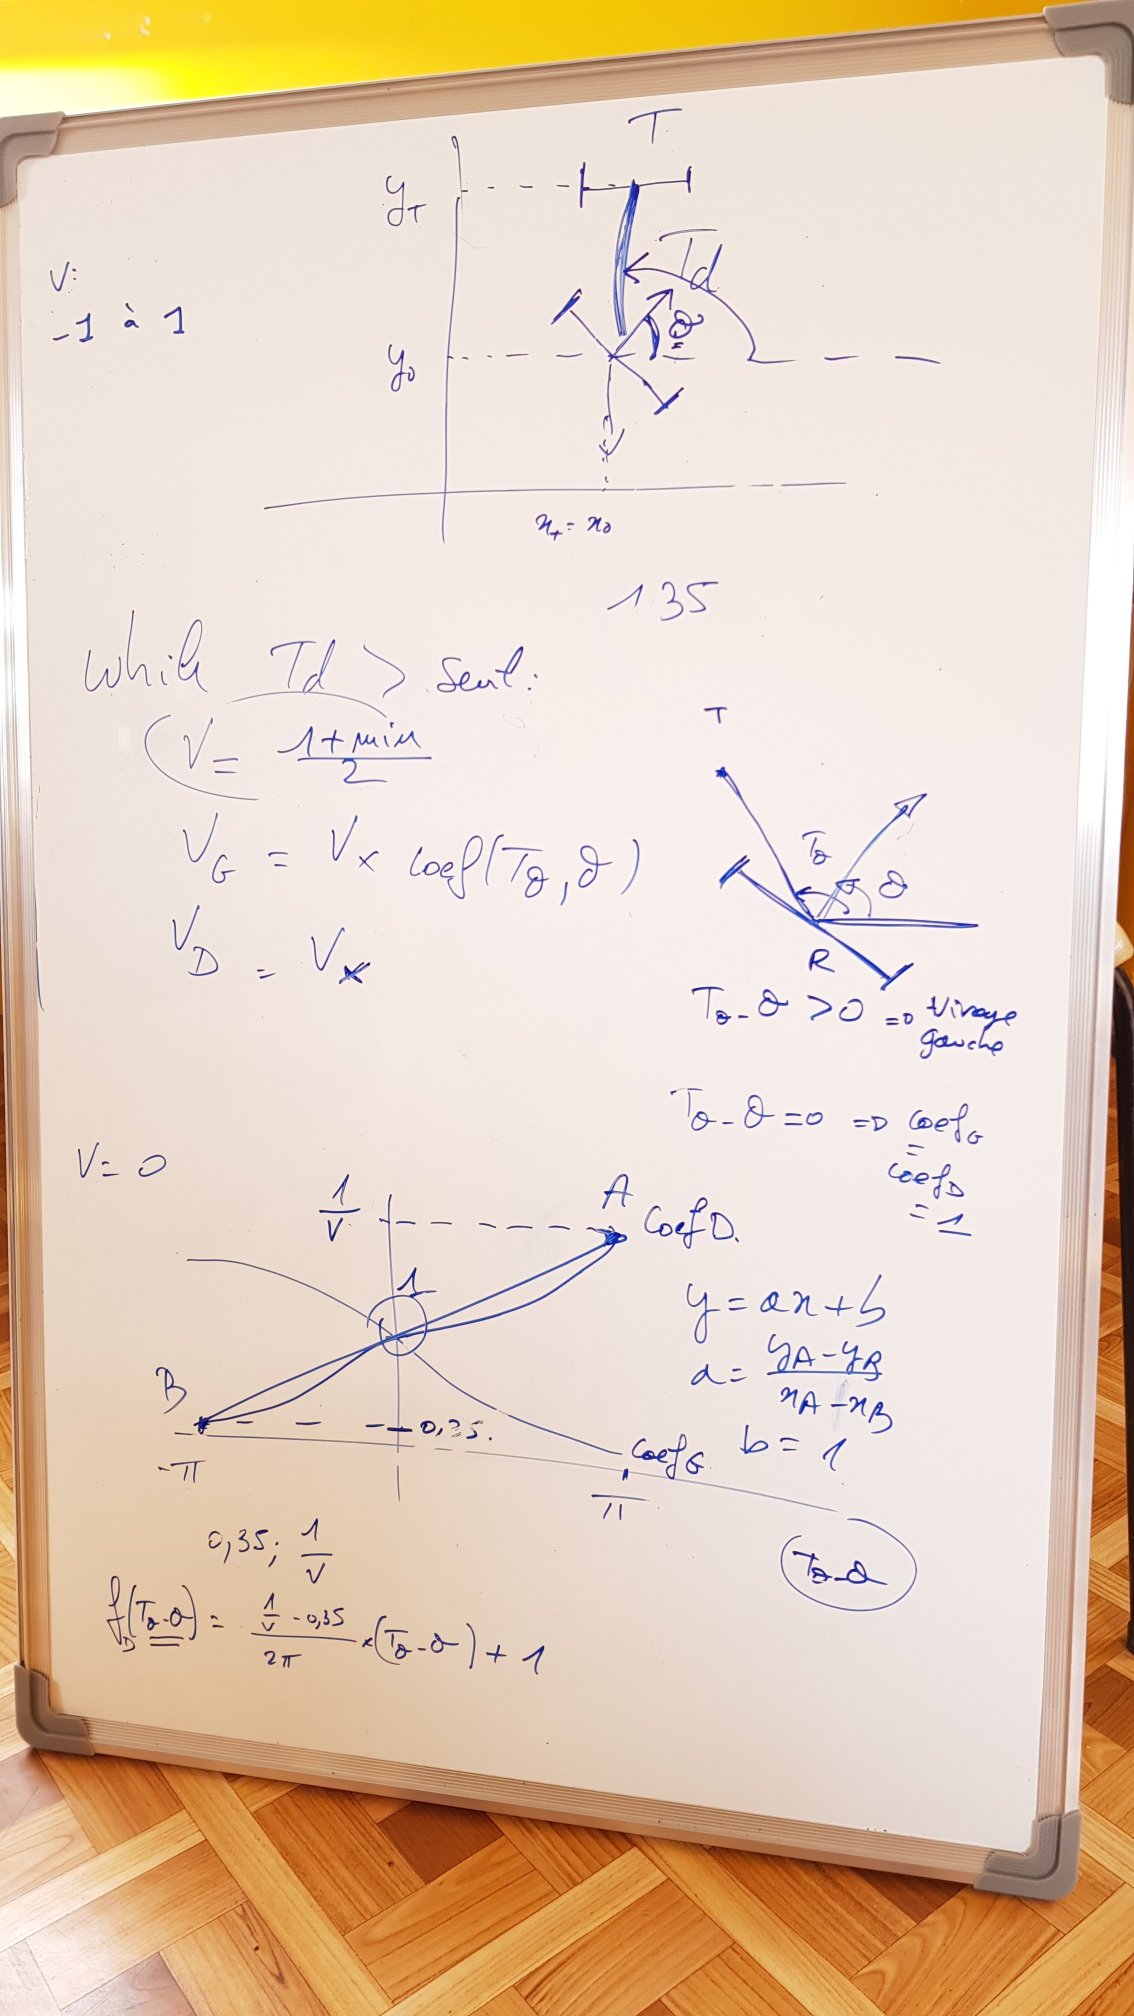 T
y_T
Td
V:
-1 à 1
θ
y_0
x_T = x_0
135
While Td > seuil:
V = (1+min)/2
T
V_G = V × coef(Tθ, θ)
Tθ θ
V_D = V ×
R
Tθ - θ > 0 => virage
gauche
Tθ - θ = 0 => coef_G
=
coef_D
= 1
V = 0
1/V
A
Coef D.
1
y = ax + b
a = (y_A - y_B)/(x_A - x_B)
B
0,35.
coef G
b = 1
-π
π
0,35; 1/V
Tθ - θ
f_D(Tθ - θ) = (1/V - 0,35)/2π × (Tθ - θ) + 1